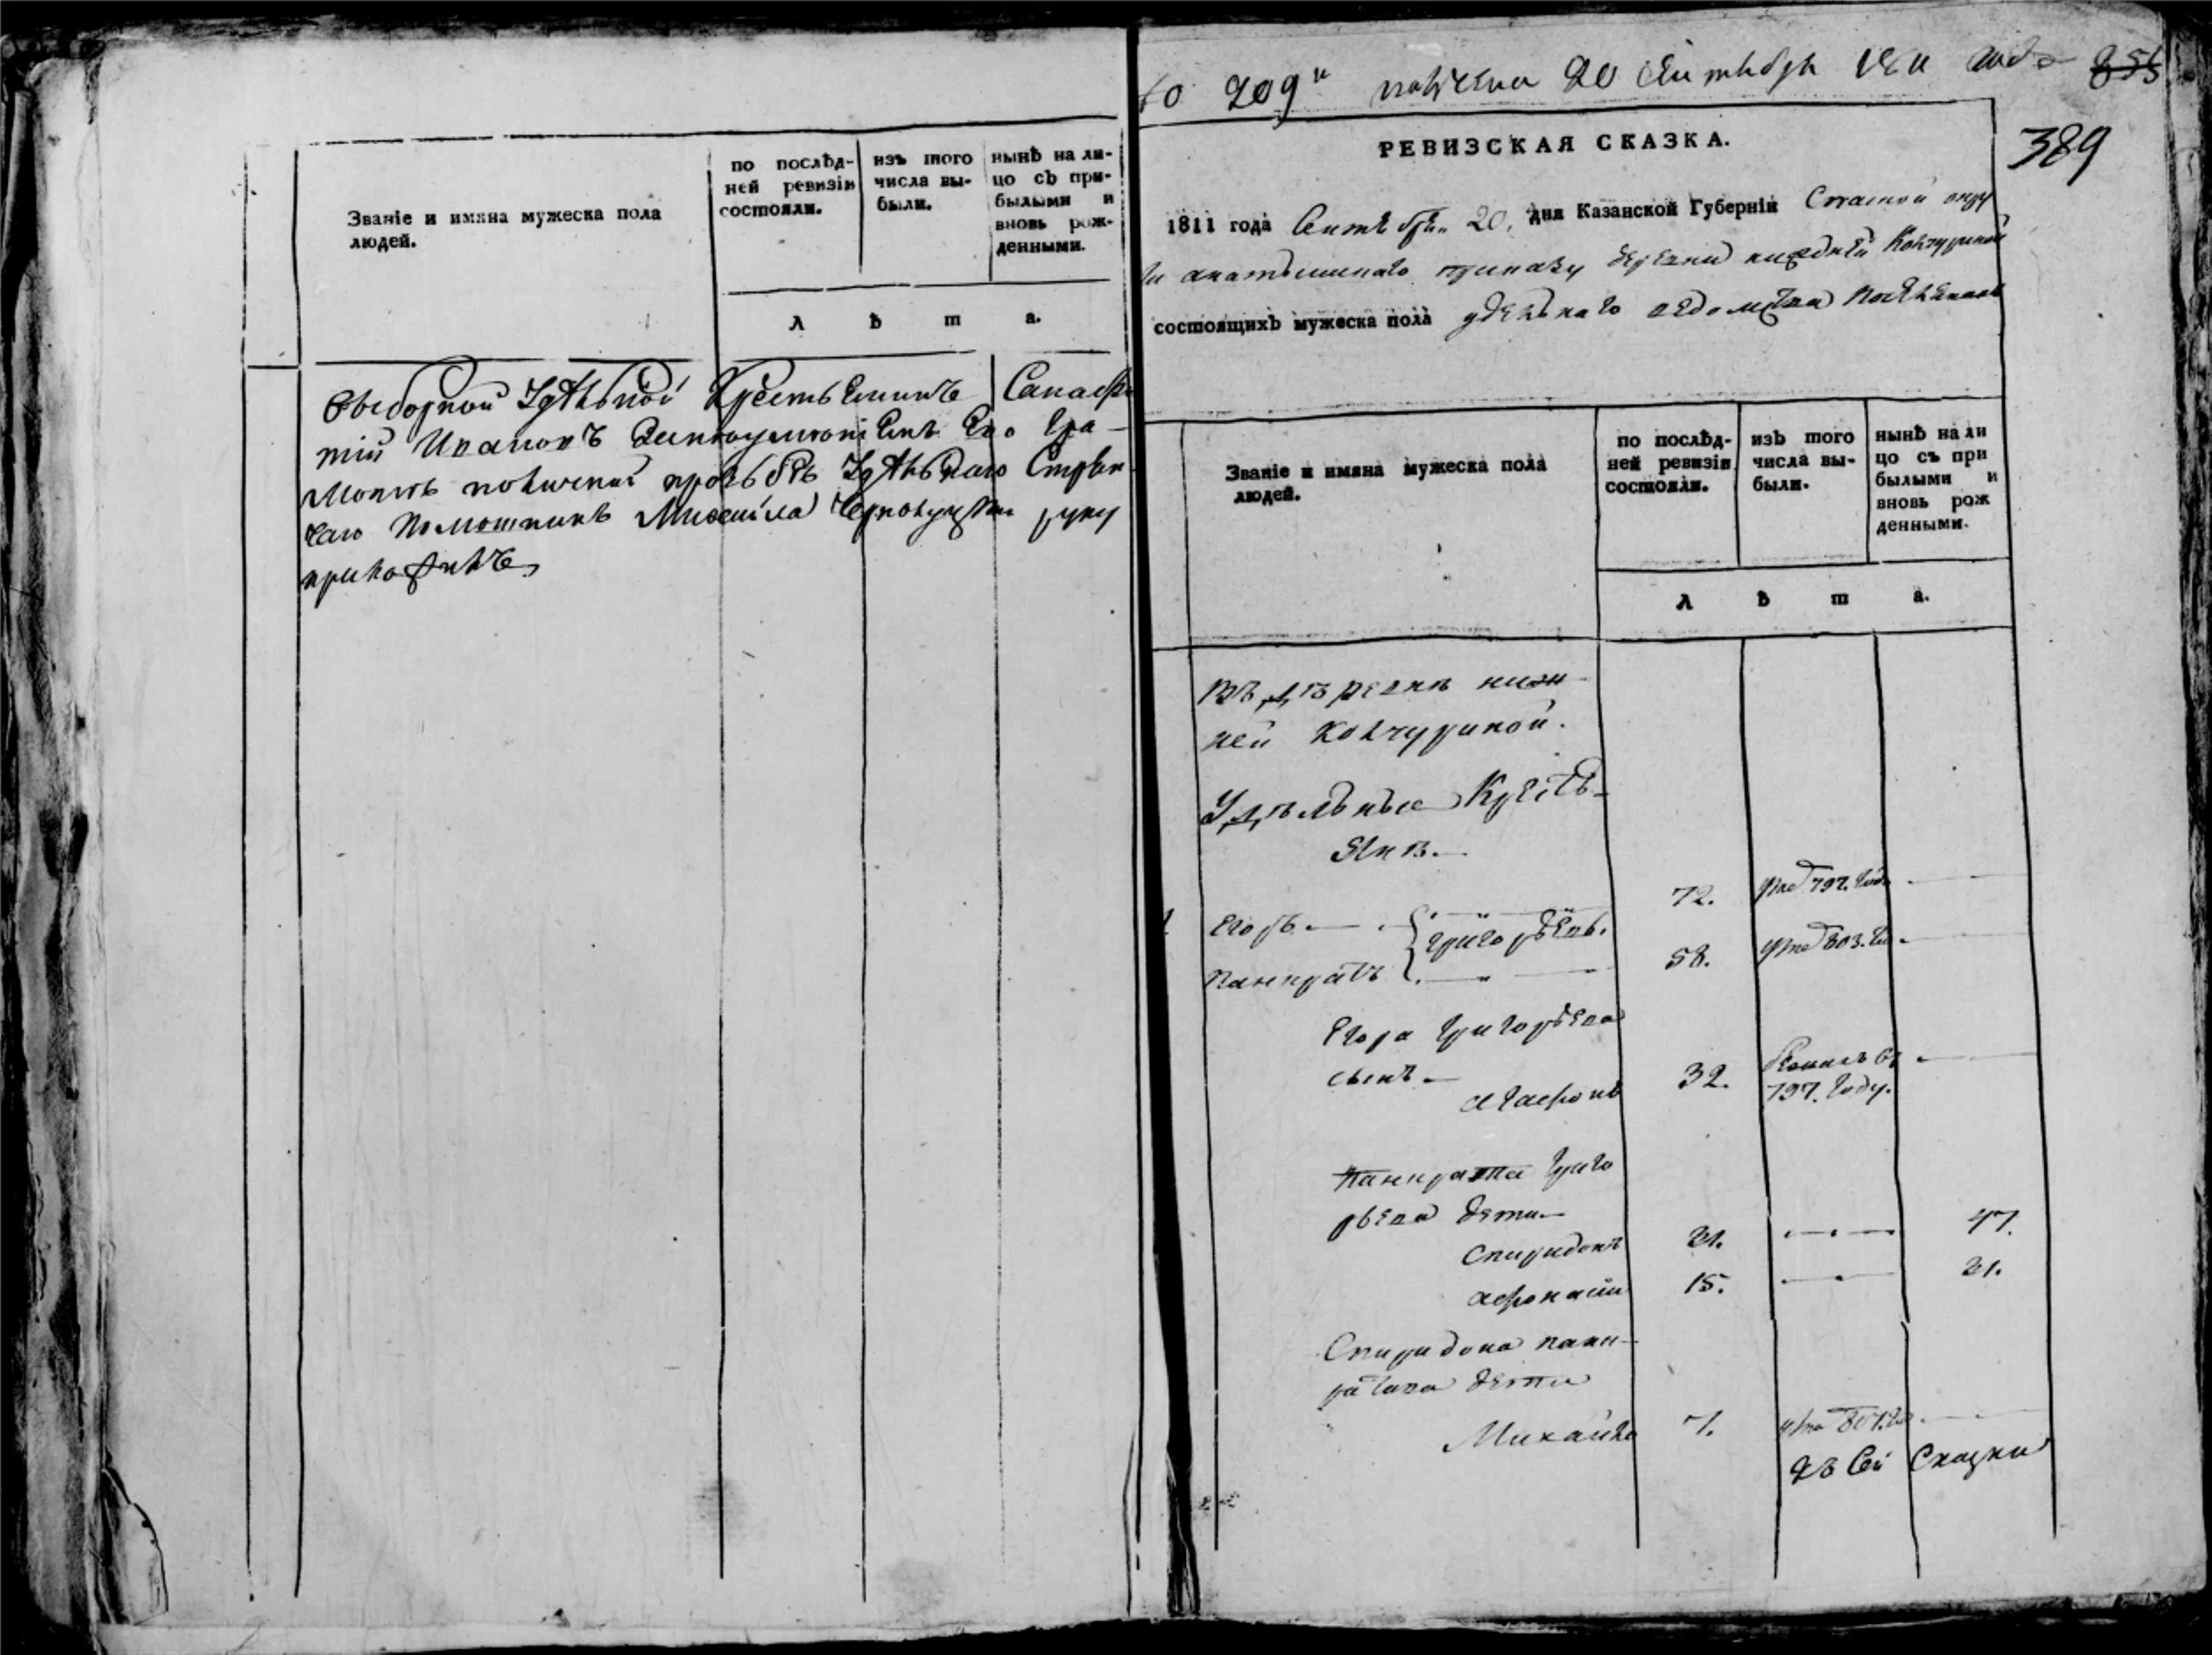 Званіе и имяна мужеска пола
людей.
по послѣд-
ней ревизіи
состояли.
изъ того
числа вы-
были.
нынѣ на ли-
цо съ при-
былыми и
вновь рож-
денными.
л ѣ т а.
Выборной Удѣльной Крестьенинъ
Ивановъ Его Гра-
прозьбѣ Удѣльнаго Стряп
чаго Помошникъ Михаила руку
приложилъ
209
20 сентября 1811 года 855
389
РЕВИЗСКАЯ СКАЗКА.
1811 года Сентебря 20. дня Казанской Губерніи Спаской окру
ги приказу деревни нижней Кокчуриной
состоящихъ мужеска пола удельнаго ведомства
Званіе и имяна мужеска пола
людей.
по послѣд-
ней ревизіи
состояли.
изъ того
числа вы-
были.
нынѣ на ли
цо съ при
былыми и
вновь рож
денными.
л ѣ т а.
въ деревне ниж-
ней Кокчуриной.
Удельные Кресть-
янв.
1 Егоръ Григорьевы. 72. умре 797. году
Панкратъ 58. умре 803. го
Егора Григорьева
сынъ
Агафонъ 32. 797. году.
Панкрата Григо
рьева дети
Спиридонъ 31. 47.
Афонасий 15. 31.
Спиридона панк-
ратова дети
Михайло 7. уме 807. го
Къ Сей Сказки